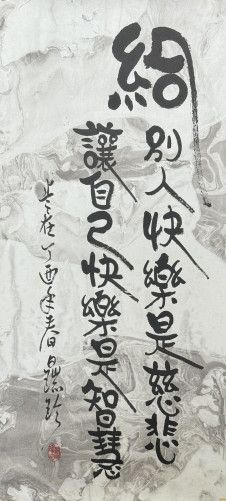 給
別人快樂是慈悲
讓自己快樂是智慧
歲在丁酉年春日